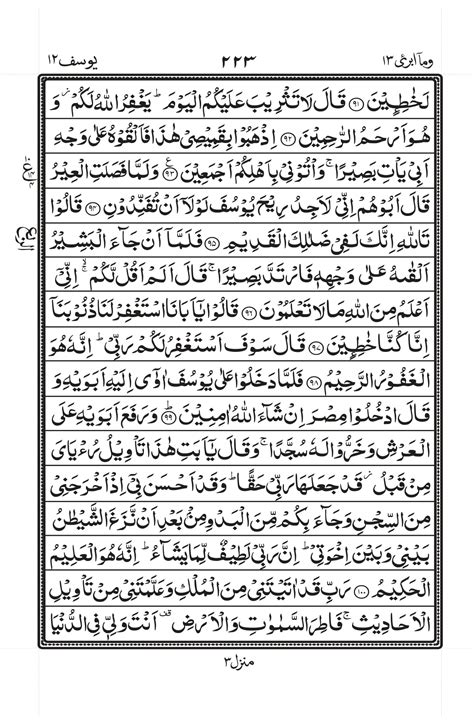 وما ابرئ ١٣ ٢٢٣ يوسف ١٢
لَخٰطِـِٕيْنَ ﴿٩١﴾ قَالَ لَا تَثْرِيْبَ عَلَيْكُمُ الْيَوْمَ ؕ يَغْفِرُ اللّٰهُ لَكُمْ ؗ وَ
هُوَ اَرْحَمُ الرّٰحِمِيْنَ ﴿٩٢﴾ اِذْهَبُوْا بِقَمِيْصِيْ هٰذَا فَاَلْقُوْهُ عَلٰى وَجْهِ
اَبِيْ يَاْتِ بَصِيْرًا ۚ وَاْتُوْنِيْ بِاَهْلِكُمْ اَجْمَعِيْنَ ﴿٩٣﴾ وَلَمَّا فَصَلَتِ الْعِيْرُ
قَالَ اَبُوْهُمْ اِنِّيْ لَاَجِدُ رِيْحَ يُوْسُفَ لَوْلَاۤ اَنْ تُفَنِّدُوْنِ ﴿٩٤﴾ قَالُوْا
تَاللّٰهِ اِنَّكَ لَفِيْ ضَلٰلِكَ الْقَدِيْمِ ﴿٩٥﴾ فَلَمَّاۤ اَنْ جَآءَ الْبَشِيْرُ
اَلْقٰىهُ عَلٰى وَجْهِهٖ فَارْتَدَّ بَصِيْرًا ۚ قَالَ اَلَمْ اَقُلْ لَّكُمْ ۙ اِنِّيْۤ
اَعْلَمُ مِنَ اللّٰهِ مَا لَا تَعْلَمُوْنَ ﴿٩٦﴾ قَالُوْا يٰۤاَبَانَا اسْتَغْفِرْ لَنَا ذُنُوْبَنَاۤ
اِنَّا كُنَّا خٰطِـِٕيْنَ ﴿٩٧﴾ قَالَ سَوْفَ اَسْتَغْفِرُ لَكُمْ رَبِّيْ ؕ اِنَّهٗ هُوَ
الْغَفُوْرُ الرَّحِيْمُ ﴿٩٨﴾ فَلَمَّا دَخَلُوْا عَلٰى يُوْسُفَ اٰوٰۤى اِلَيْهِ اَبَوَيْهِ وَ
قَالَ ادْخُلُوْا مِصْرَ اِنْ شَآءَ اللّٰهُ اٰمِنِيْنَ ﴿٩٩﴾ وَرَفَعَ اَبَوَيْهِ عَلَى
الْعَرْشِ وَخَرُّوْا لَهٗ سُجَّدًا ۚ وَقَالَ يٰۤاَبَتِ هٰذَا تَاْوِيْلُ رُءْيَايَ
مِنْ قَبْلُ ؗ قَدْ جَعَلَهَا رَبِّيْ حَقًّا ؕ وَقَدْ اَحْسَنَ بِيْۤ اِذْ اَخْرَجَنِيْ
مِنَ السِّجْنِ وَجَآءَ بِكُمْ مِّنَ الْبَدْوِ مِنْۢ بَعْدِ اَنْ نَّزَغَ الشَّيْطٰنُ
بَيْنِيْ وَبَيْنَ اِخْوَتِيْ ؕ اِنَّ رَبِّيْ لَطِيْفٌ لِّمَا يَشَآءُ ؕ اِنَّهٗ هُوَ الْعَلِيْمُ
الْحَكِيْمُ ﴿١٠٠﴾ رَبِّ قَدْ اٰتَيْتَنِيْ مِنَ الْمُلْكِ وَعَلَّمْتَنِيْ مِنْ تَاْوِيْلِ
الْاَحَادِيْثِ ۚ فَاطِرَ السَّمٰوٰتِ وَالْاَرْضِ ۟ اَنْتَ وَلِيّٖ فِي الدُّنْيَا
منزل ٣